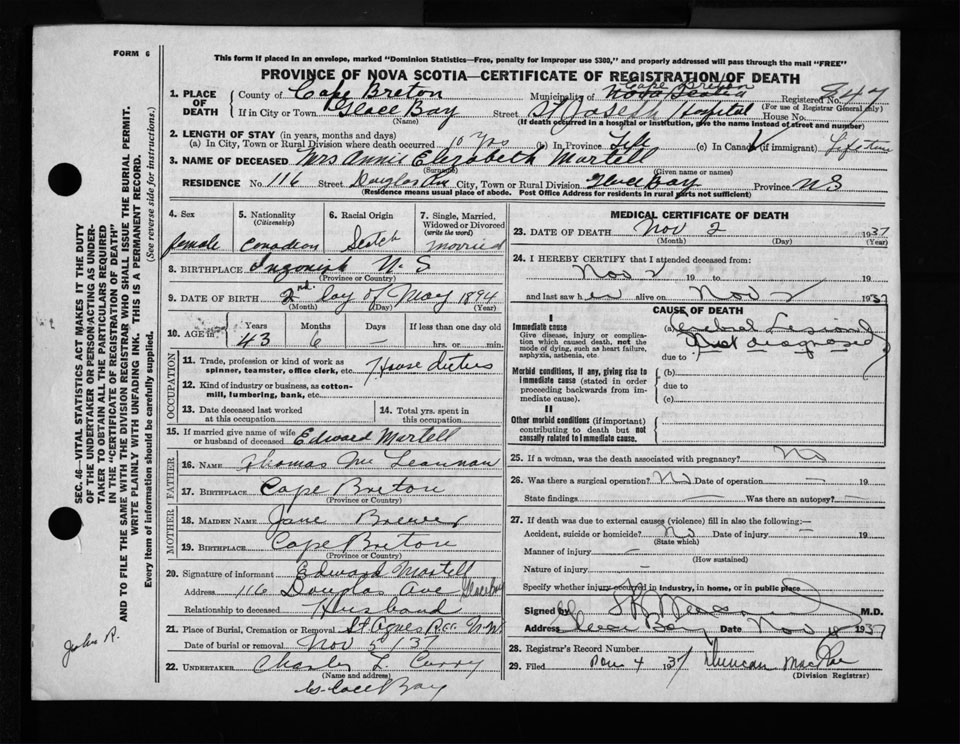 FORM 6
This form if placed in an envelope, marked "Dominion Statistics—Free, penalty for improper use $300," and properly addressed will pass through the mail "FREE"
PROVINCE OF NOVA SCOTIA—CERTIFICATE OF REGISTRATION OF DEATH
1. PLACE OF DEATH
County of Cape Breton Municipality of Nova Scotia Cape Breton Registered No. 847
(For use of Registrar General only)
If in City or Town Glace Bay Street St Joseph Hospital House No.
(Name) (If death occurred in a hospital or institution, give the name instead of street and number)
2. LENGTH OF STAY (in years, months and days)
(a) In City, Town or Rural Division where death occurred 10 yrs (b) In Province Life (c) In Canada (if immigrant) Lifetime
3. NAME OF DECEASED Mrs Annie Elizabeth Martell
(Surname) (Given name or names)
RESIDENCE No. 116 Street Douglas Ave City, Town or Rural Division Glace Bay Province N S
(Residence means usual place of abode. Post Office Address for residents in rural parts not sufficient)
4. Sex
female
5. Nationality
(Citizenship)
Canadian
6. Racial Origin
Scotch
7. Single, Married, Widowed or Divorced
(write the word)
married
8. BIRTHPLACE Ingonish N. S
(Province or Country)
9. DATE OF BIRTH 2nd day of May 1894
(Month) (Day) (Year)
10. AGE in
Years
43
Months
6
Days
—
If less than one day old
hrs. or min.
OCCUPATION
11. Trade, profession or kind of work as spinner, teamster, office clerk, etc. House duties
12. Kind of industry or business, as cotton-mill, lumbering, bank, etc.
13. Date deceased last worked at this occupation
14. Total yrs. spent in this occupation
15. If married give name of wife or husband of deceased Edward Martell
FATHER
16. NAME Thomas Mc Leannan
17. BIRTHPLACE Cape Breton
(Province or Country)
MOTHER
18. MAIDEN NAME Jane Brewer
19. BIRTHPLACE Cape Breton
(Province or Country)
20. Signature of informant Edward Martell
Address 116 Douglas Ave Glace Bay
Relationship to deceased Husband
21. Place of Burial, Cremation or Removal St Agnes N.W.
Date of burial or removal Nov 5/37
22. UNDERTAKER Charles L Curry
(Name and address)
Glace Bay
MEDICAL CERTIFICATE OF DEATH
23. DATE OF DEATH Nov 2 1937
(Month) (Day) (Year)
24. I HEREBY CERTIFY that I attended deceased from:
Nov 2 19 to 19
and last saw her alive on Nov 2 1937
CAUSE OF DEATH
I
Immediate cause
Give disease, injury or complication which caused death, not the mode of dying, such as heart failure, asphyxia, asthenia, etc.
(a) Cerebral Lesion
Not diagnosed
due to
Morbid conditions, if any, giving rise to immediate cause (stated in order proceeding backwards from immediate cause).
(b)
due to
(c)
II
Other morbid conditions (if important) contributing to death but not causally related to immediate cause.
25. If a woman, was the death associated with pregnancy? No
26. Was there a surgical operation? No Date of operation — 19
State findings — Was there an autopsy? —
27. If death was due to external causes (violence) fill in also the following:—
Accident, suicide or homicide? No Date of injury — 19
(State which)
Manner of injury —
(How sustained)
Nature of injury —
Specify whether injury occurred in industry, in home, or in public place
Signed by M.D.
Address Glace Bay Date Nov 1937
28. Registrar's Record Number
29. Filed Nov 4 1937 Duncan MacRae
(Division Registrar)
SEC. 46—VITAL STATISTICS ACT MAKES IT THE DUTY
OF THE UNDERTAKER OR PERSON ACTING AS UNDER-
TAKER TO OBTAIN ALL THE PARTICULARS REQUIRED
IN THE "CERTIFICATE OF REGISTRATION OF DEATH"
AND TO FILE THE SAME WITH THE DIVISION REGISTRAR WHO SHALL ISSUE THE BURIAL PERMIT.
WRITE PLAINLY WITH UNFADING INK. THIS IS A PERMANENT RECORD.
Every item of information should be carefully supplied. (See reverse side for instructions.)
John R.